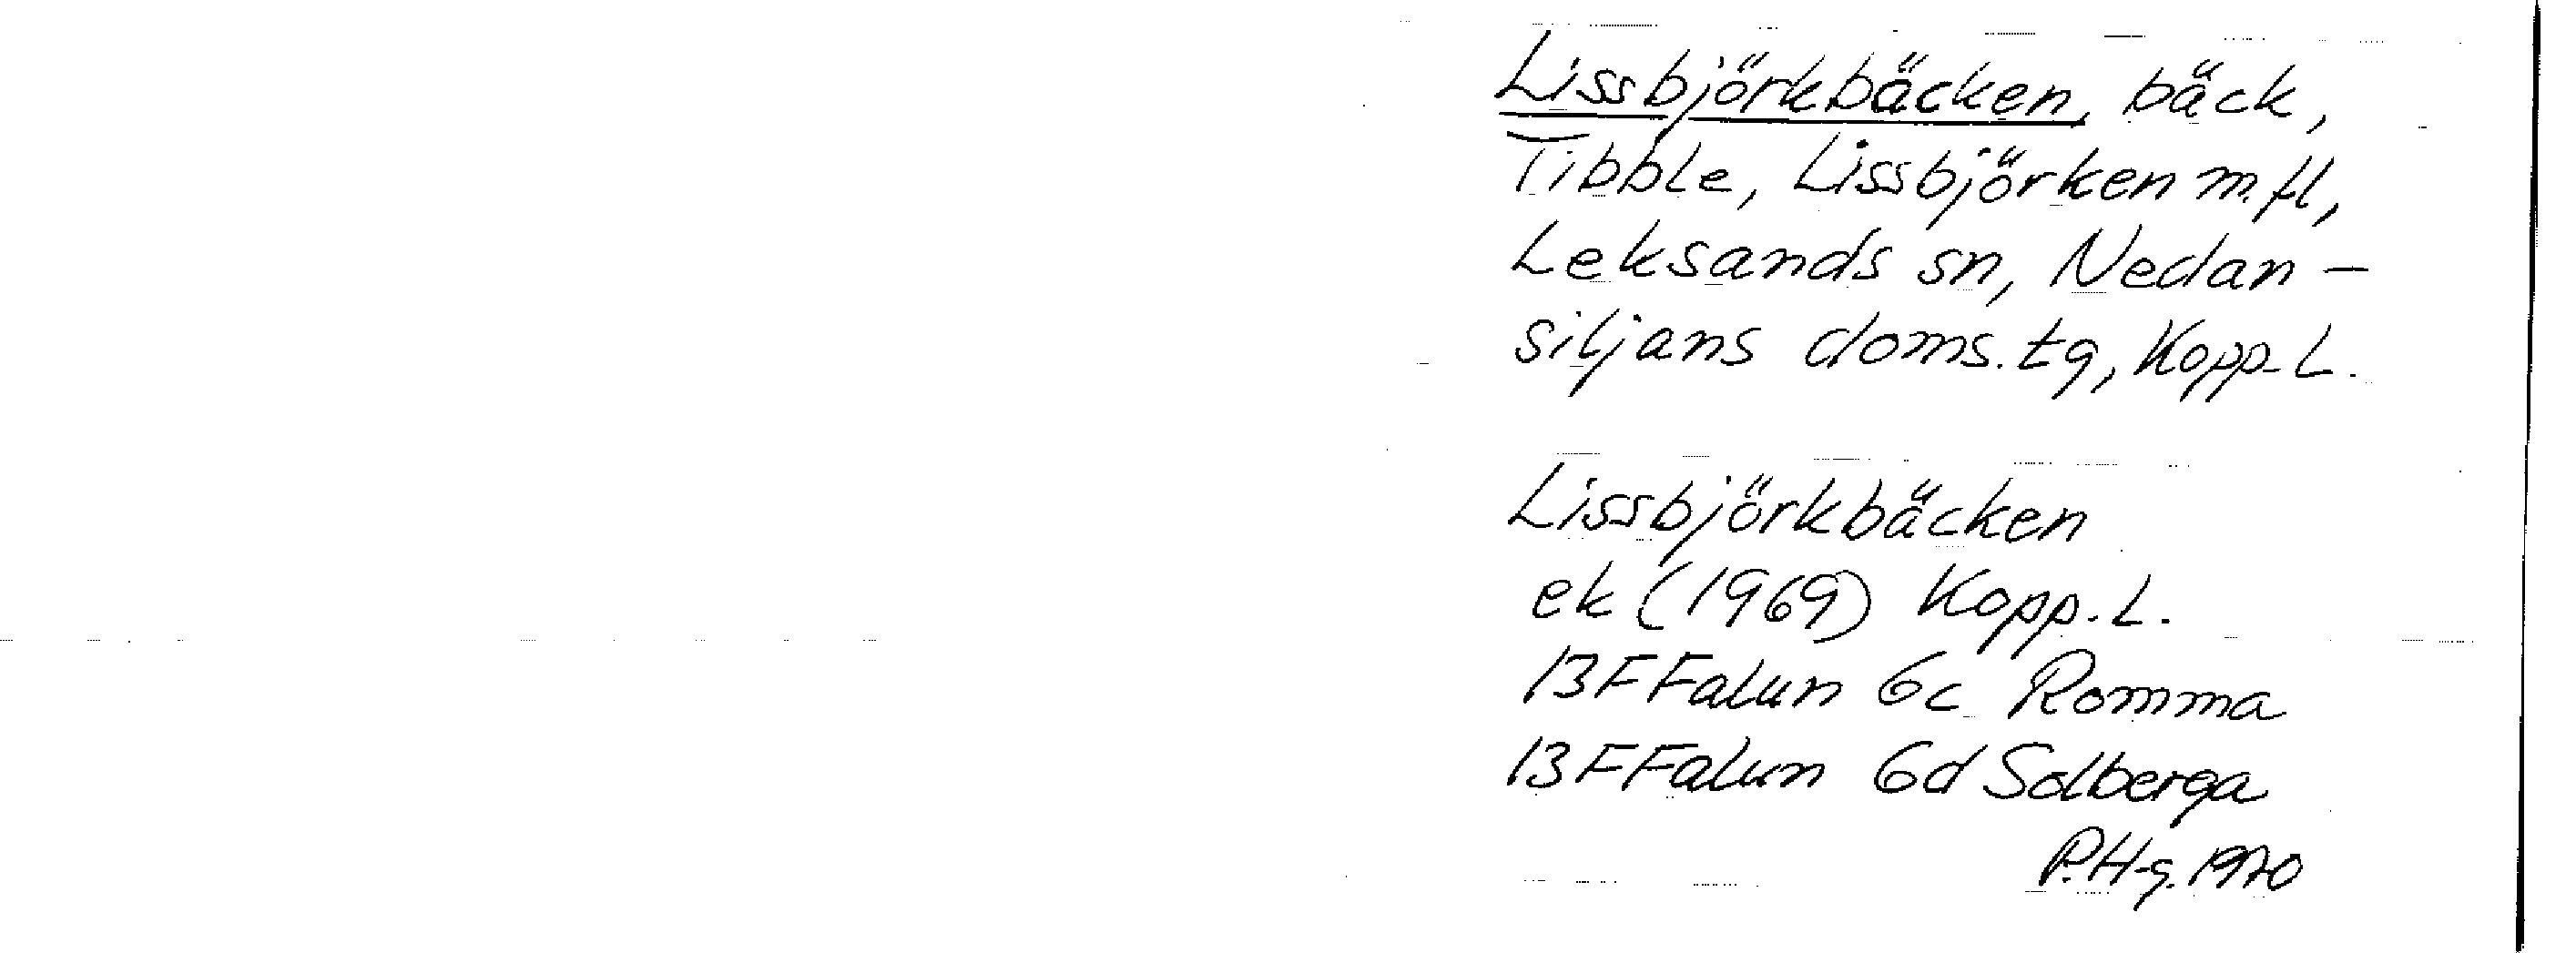 Lissbjörkbäcken, bäck,
Tibble, Lissbjörken m.fl,
Leksands sn, Nedan-
siljans doms.tg, Kopp.L.
Lissbjörkbäcken
ek (1969) Kopp.L.
13F Falun 6c Romma
13F Falun 6d Solberga
P.H-g. 1970